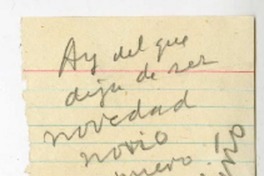 Ay del que
deja de ser
novedad
novio